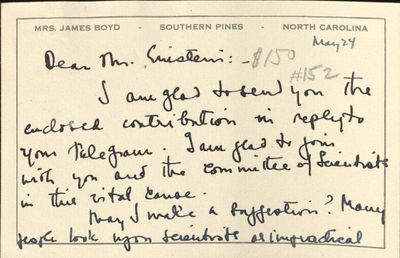 MRS. JAMES BOYD · SOUTHERN PINES · NORTH CAROLINA
May 24
Dear Mr. Einstein: - $150
#152
I am glad to send you the
enclosed contribution in reply to
your telegram. I am glad to join
with you and the committee of Scientists
in this vital cause.
May I make a suggestion? Many
people look upon scientists as impractical